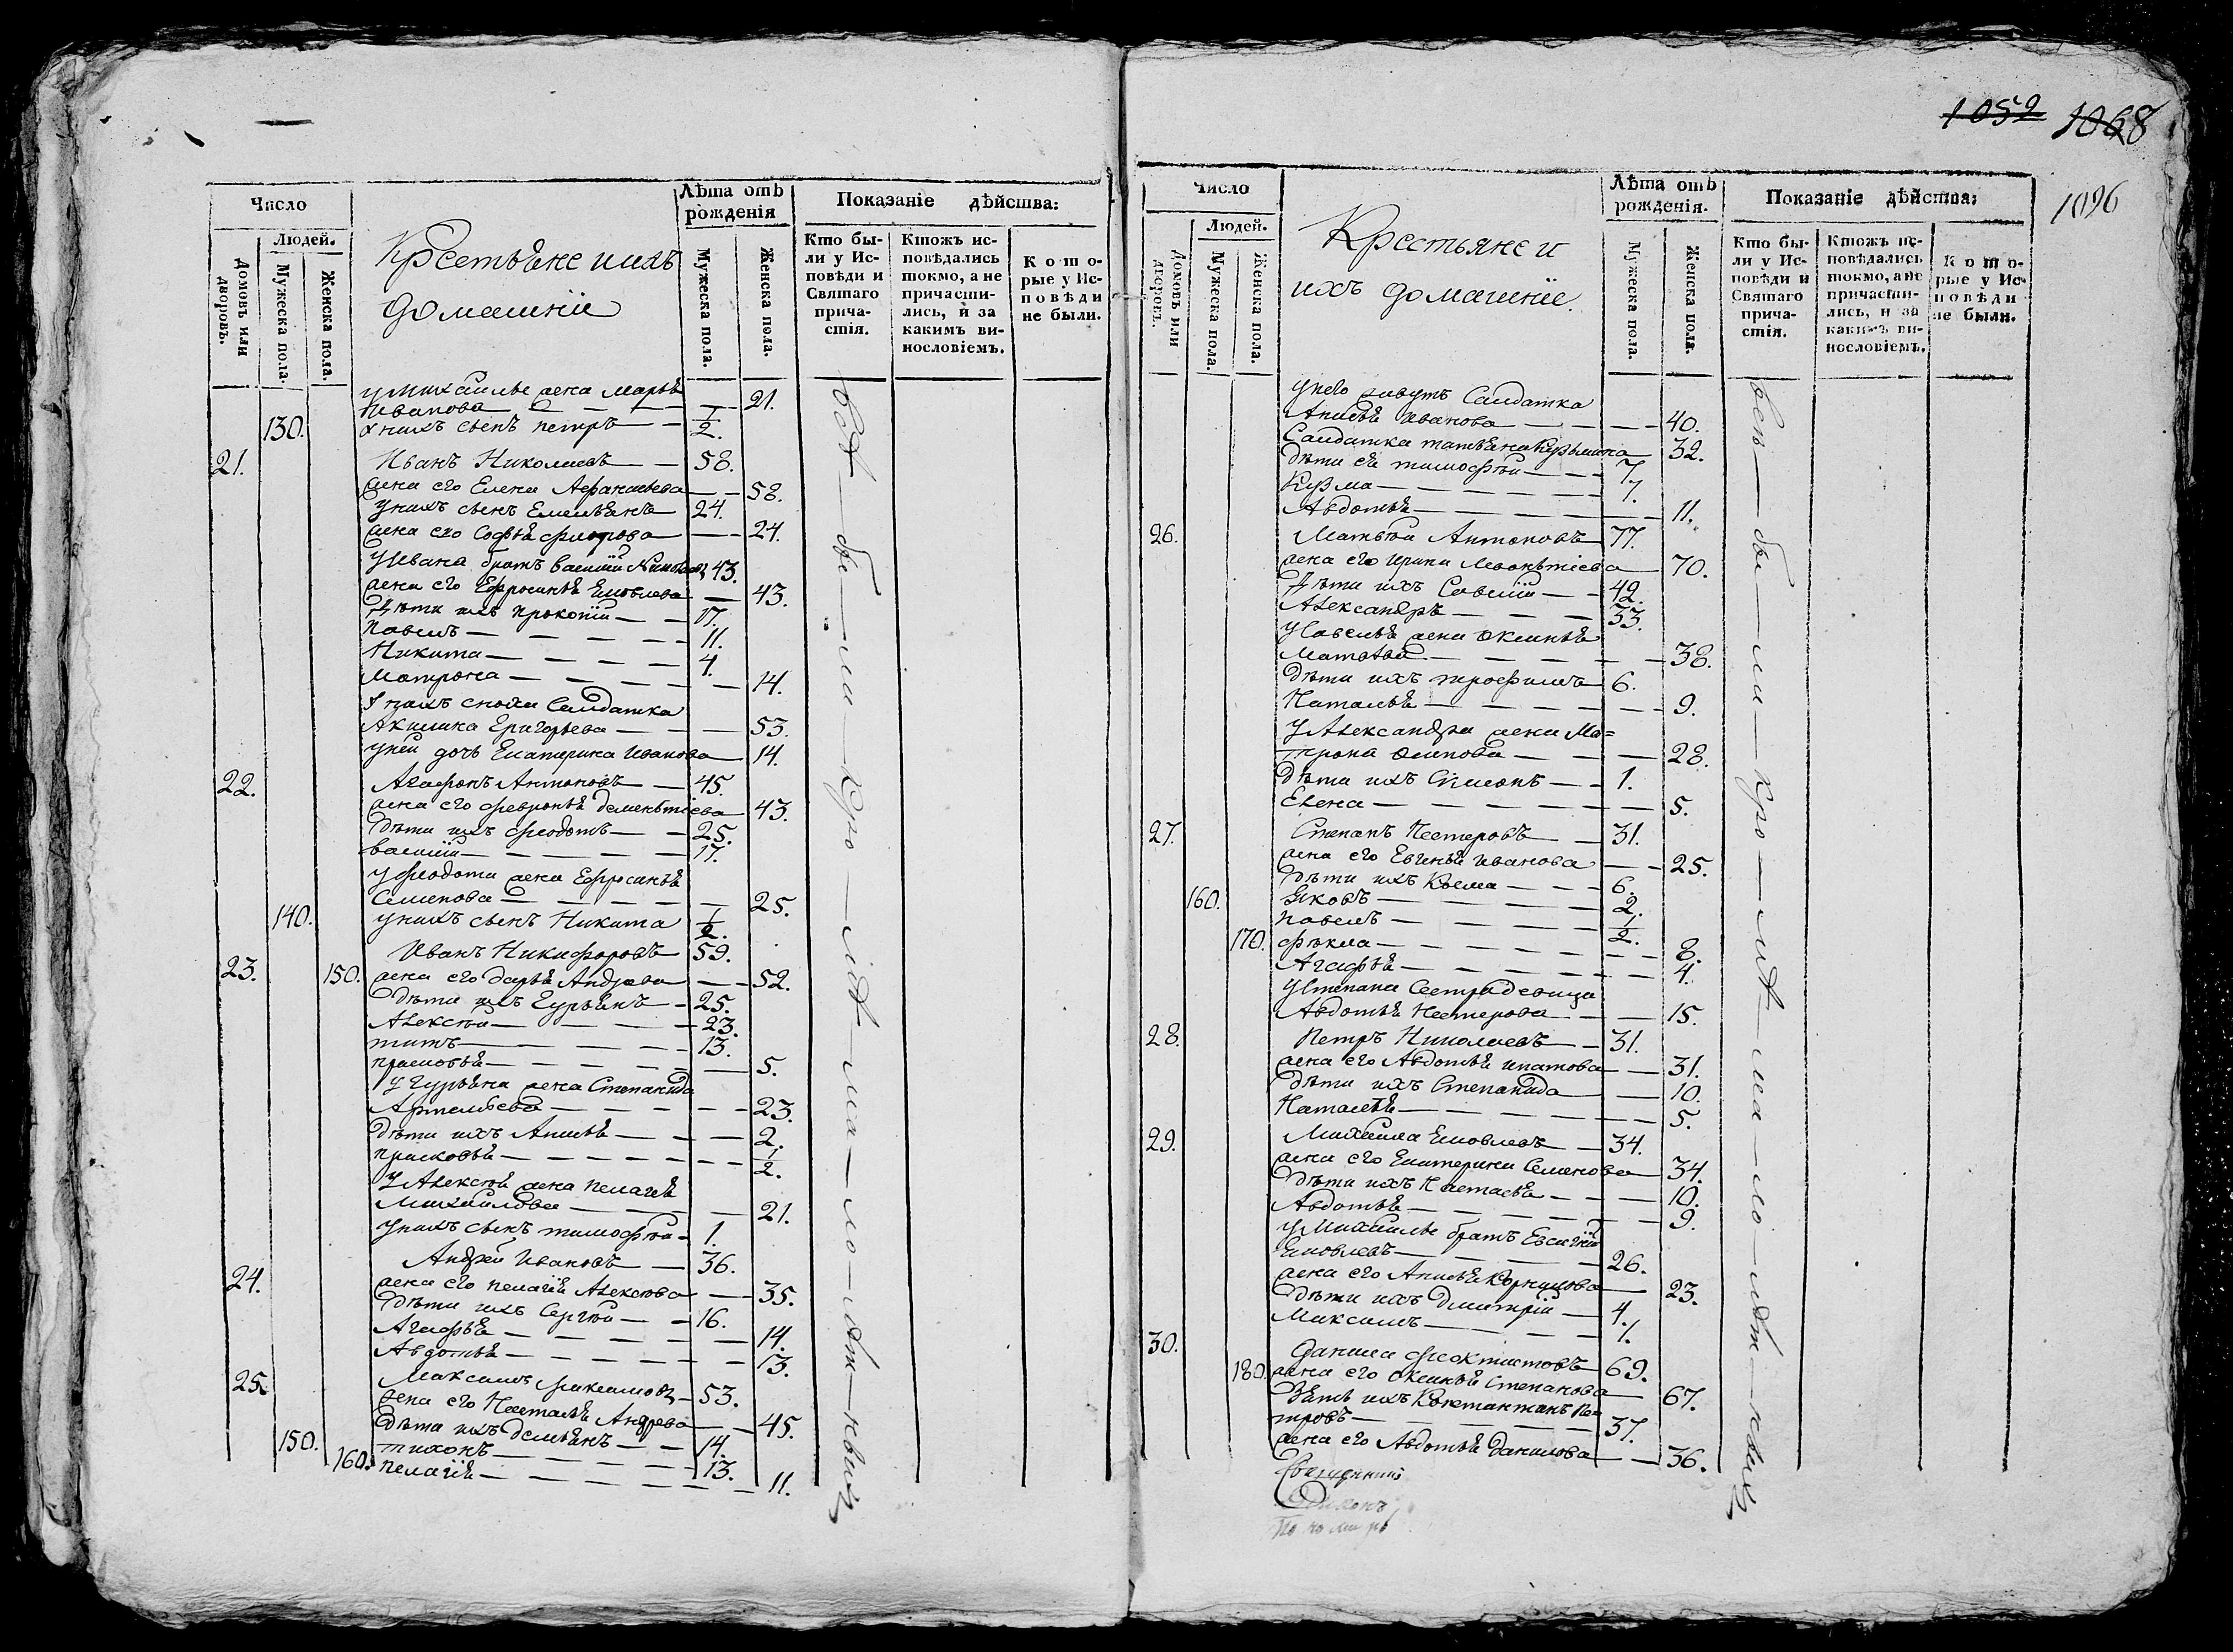 1052 1068
1096
Число
Людей.
Домовъ или дворовъ.
Мужеска пола.
Женска пола.
Крестьяне и ихъ
домашніе
Лѣта отъ рожденія
Мужеска пола.
Женска пола.
Показаніе дѣйства:
Кто бы-
ли у Ис-
повѣди и
Святаго
прича-
стія.
Ктожъ ис-
повѣдались
токмо, а не
причасти-
лись, и за
какимъ ви-
нословіемъ.
Кото-
рые у Ис-
повѣди
не были.
у Михаилы жена Марья
Иванова — 21.
130. у нихъ сынъ петръ — 1/2.
21. Иванъ Николаевъ — 58.
жена его Елена Афанасьева — 58.
у нихъ сынъ Емельянъ 24.
жена его Софья — 24.
у Ивана братъ василій 43.
жена его Ефросинья Яковлева — 43.
дѣти ихъ прокопій — 17.
павелъ — 11.
Никита — 4.
матрона — 14.
сноха Салдатка
Акилина Григорьева — 53.
у ней дочь Екатерина Иванова 14.
22. Агафонъ Антоновъ — 45.
жена его февронья дементьева 43.
дѣти ихъ федотъ — 25.
василій — 17.
у федота жена Ефросинья
Семенова — 25.
140. у нихъ сынъ Никита 1/2.
23. Иванъ Никифоровъ 59.
150. жена его дарья Андрева — 52.
дѣти ихъ Гурьянъ — 25.
Алексѣй — 23.
титъ — 13.
прасковья — 5.
у Гурьяна жена Степанида
Артемьева — 23.
дѣти ихъ Анисья — 2.
прасковья — 1/2.
у Алексѣя жена пелагея
Михайлова — 21.
у нихъ сынъ тимофѣй — 1.
24. Андрей Ивановъ — 36.
жена его пелагея Алексѣева — 35.
дѣти ихъ Сергѣй — 16.
Агафья — 14.
Авдотья — 13.
25. Максимъ — 53.
жена его Наталья Андрева — 45.
дѣти ихъ демьянъ — 14.
150. тихонъ — 13.
160. пелагея — 11.
Число
Людей.
Домовъ или дворовъ.
Мужеска пола.
Женска пола.
Крестьяне и
ихъ домашніе
Лѣта отъ рожденія.
Мужеска пола.
Женска пола.
Показаніе дѣйства:
Кто бы-
ли у Ис-
повѣди и
Святаго
прича-
стія.
Ктожъ ис-
повѣдались
токмо, а не
причасти-
лись, и за
какимъ ви-
нословіемъ.
Кото-
рые у Ис-
повѣди
не были.
у него живутъ Салдатка
Анисья Иванова — 40.
Салдатка татьяна Кузьмина 32.
дѣти ей тимофѣй — 7.
Кузма — 7.
Авдотья — 11.
26. Матвѣй Антоновъ 77.
жена его Ирина Леонтіева 70.
дѣти ихъ Савелій — 42.
Александръ — 33.
у Савелья жена Оксинья
Матвѣева — 38.
дѣти ихъ трофимъ 6.
Наталья — 9.
у Александра жена Ма=
трона Осипова — 28.
дѣти ихъ Симеонъ — 1.
Елена — 5.
27. Степанъ Нестеровъ — 31.
жена его Евгенья Иванова — 25.
дѣти ихъ Козма — 6.
160. Яковъ — 2.
павелъ — 1/2.
170. фекла — 8.
Агафья — 4.
у Степана Сестра девица
Авдотья Нестерова — 15.
28. Петръ Николаевъ — 31.
жена его Авдотья Ипатова — 31.
дѣти ихъ Степанида — 10.
Наталья — 5.
29. Михаила Яковлевъ — 34.
жена его Екатерина Семенова 34.
дѣти ихъ Настасья — 10.
Авдотья — 9.
у Михаилы братъ
Яковлевъ — 26.
жена его Анисья Корнилова 23.
дѣти ихъ дмитрій — 4.
Максимъ — 1.
30. Данила феоктистовъ 69.
180. жена его Оксинья Степанова 67.
зять ихъ Константинъ Пе=
тровъ — 37.
жена его Авдотья Данилова — 36.
Священникъ